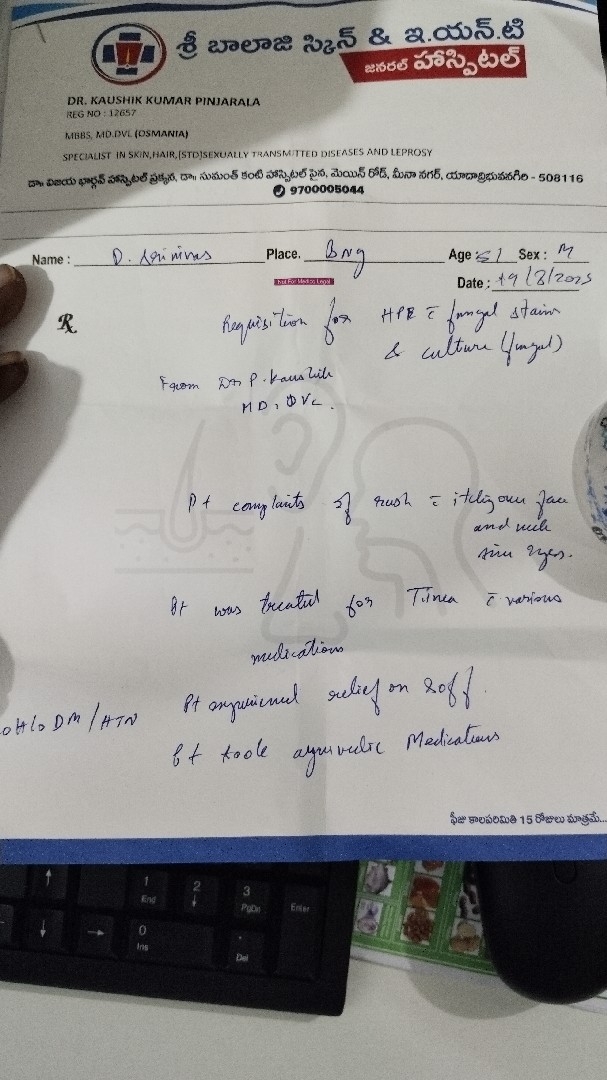 శ్రీ బాలాజి స్కిన్ & ఇ.యన్.టి
జనరల్ హాస్పిటల్
DR. KAUSHIK KUMAR PINJARALA
REG NO : 12657
MBBS, MD.DVL (OSMANIA)
SPECIALIST IN SKIN,HAIR,(STD)SEXUALLY TRANSMITTED DISEASES AND LEPROSY
డా॥ విజయ భార్గవ్ హాస్పిటల్ ప్రక్కన, డా॥ సుమంత్ కంటి హాస్పిటల్ పైన, మెయిన్ రోడ్, మీనా నగర్, యాదాద్రిభువనగిరి - 508116
9700005044
Name : D. Srinivas Place. BNG Age : 51 Sex : M
Not For Medico Legal
Date : 19/8/2025
℞ Requisition for HPE c̄ fungal stain
& culture (fungal)
From Dr P. Kaushik
MD, DVL.
Pt complaints of rash c̄ itching over face
and neck
since
Pt was treated for Tinea c̄ various
medications
Pt experienced relief on & off.
DM/HTN
Pt took ayurvedic Medications
ఫీజు కాలపరిమితి 15 రోజులు మాత్రమే...
1
End
2
3
PgDn
Enter
0
Ins
.
Del